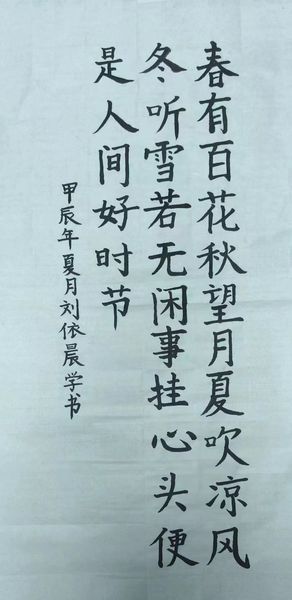 春有百花秋望月夏吹凉风
冬听雪若无闲事挂心头便
是人间好时节
甲辰年夏月刘依晨学书